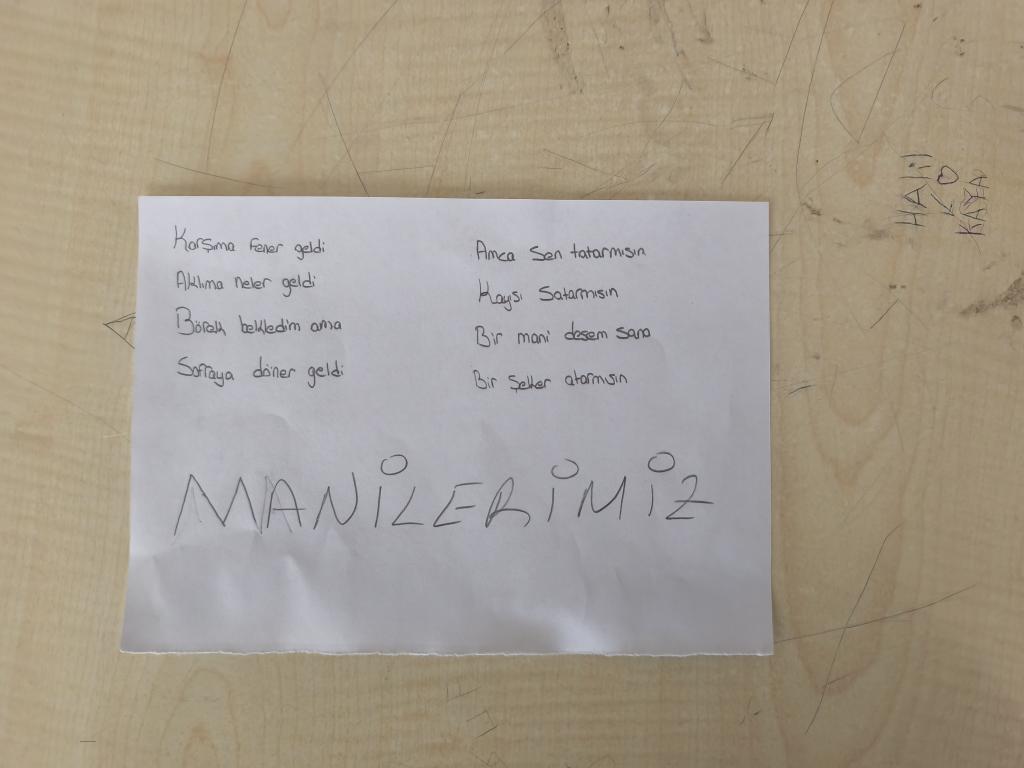 Karşıma fener geldi
Aklıma neler geldi
Börek bekledim ama
Sofraya döner geldi
Amca sen tatarmısın
Kayısı Satarmısın
Bir mani desem sana
Bir şeker atarmısın
MANİLERİMİZ
HALİL
KAYA